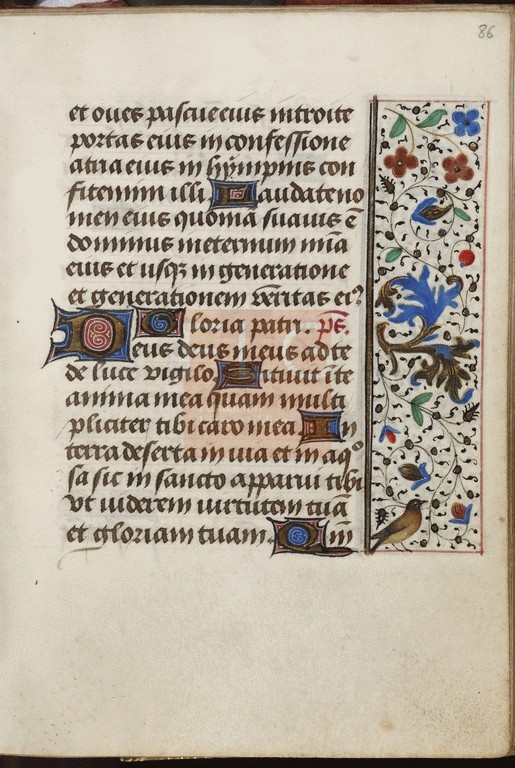 86
et oues pascue eius introite
portas eius in confessione
atria eius in hympnis con
fitemini illi. Laudate no
men eius quoniā suauis ē
dominus in eternum mīa
eius et usqȝ in generatione
et generationem veritas eiꝰ
Gloria patri. ps.
Deus deus meus ad te
de luce vigilo. Sitiuit ī te
anima mea quam multi
pliciter tibi caro mea. In
terra deserta in uia et in aq̄
sa sic in sancto apparui tibi
vt uiderem uirtutem tuā
et gloriam tuam. Qm̄